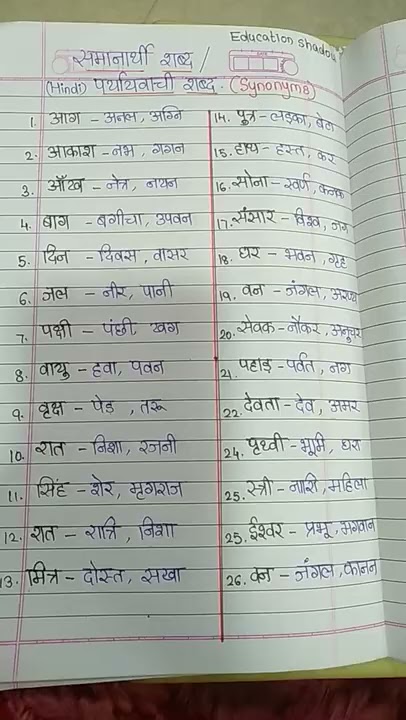 Education shadow
समानार्थी शब्द /
(Hindi) पर्यायवाची शब्द. (Synonyms)
1. आग - अनल, अग्नि
2. आकाश - नभ, गगन
3. आँख - नेत्र, नयन
4. बाग - बगीचा, उपवन
5. दिन - दिवस, वासर
6. जल - नीर, पानी
7. पक्षी - पंछी, खग
8. वायु - हवा, पवन
9. वृक्ष - पेड, तरू
10. रात - निशा, रजनी
11. सिंह - शेर, मृगराज
12. रात - रात्रि, निशा
13. मित्र - दोस्त, सखा
14. पुत्र - लड़का, बेटा
15. हाथ - हस्त, कर
16. सोना - स्वर्ण, कनक
17. संसार - विश्व, जग
18. घर - भवन, गृह
19. वन - जंगल, अरण्य
20. सेवक - नौकर, अनुचर
21. पहाड़ - पर्वत, नग
22. देवता - देव, अमर
24. पृथ्वी - भूमि, धरा
25. स्त्री - नारी, महिला
25. ईश्वर - प्रभू, भगवान
26. वन - जंगल, कानन